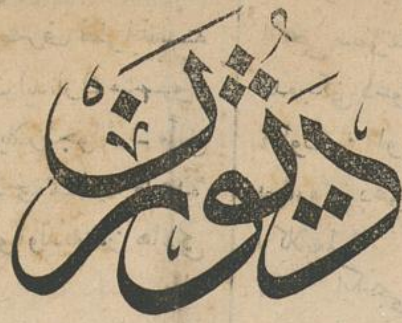 ديوژن